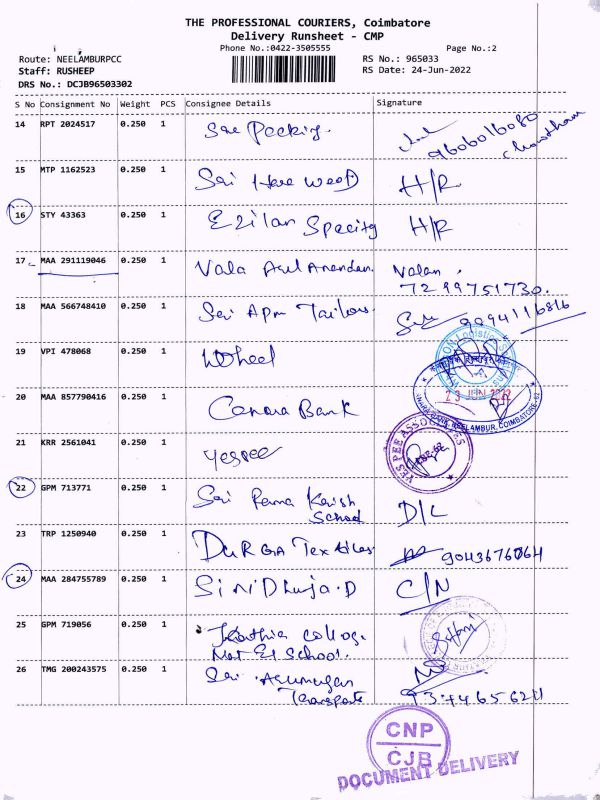 THE PROFESSIONAL COURIERS, Coimbatore
Delivery Runsheet - CMP
Phone No.:0422-3505555 Page No.:2
Route: NEELAMBURPCC RS No.: 965033
Staff: RUSHEEP RS Date: 24-Jun-2022
DRS No.: DCJB96503302
S No Consignment No Weight PCS Consignee Details Signature
14 RPT 2024517 0.250 1 Sree Packing
15 MTP 1162523 0.250 1 Sri H/R
16 STY 43363 0.250 1 Ezilan H/R
17 MAA 291119046 0.250 1 Vala Nalan
7299751730
18 MAA 566748410 0.250 1 Sri Apm Tailors 9094116816
19 VPI 478068 0.250 1 Wheel
20 MAA 857790416 0.250 1 Canara Bank
23 JUN 2022
NEELAMBUR, COIMBATORE-62
21 KRR 2561041 0.250 1 Yespee
YES PEE ASSOCIATES
22 GPM 713771 0.250 1 Sri Rama Krish D/L
School
23 TRP 1250940 0.250 1 DURGA Textiles 9043676064
24 MAA 284755789 0.250 1 SINDhuja.D C/N
25 GPM 719056 0.250 1 Kathir College
Mat School.
26 TMG 200243575 0.250 1 Sri Arumugan
Transports 9344656211
CNP
CJB
DOCUMENT DELIVERY